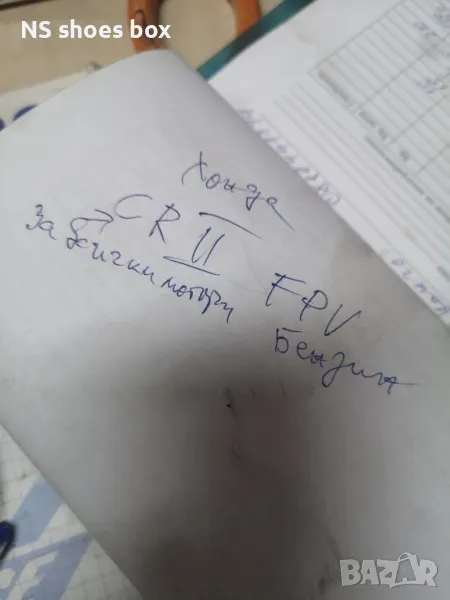 NS shoes box
Хонда
CR II FPV
За всички мотори
Бензин
bazar